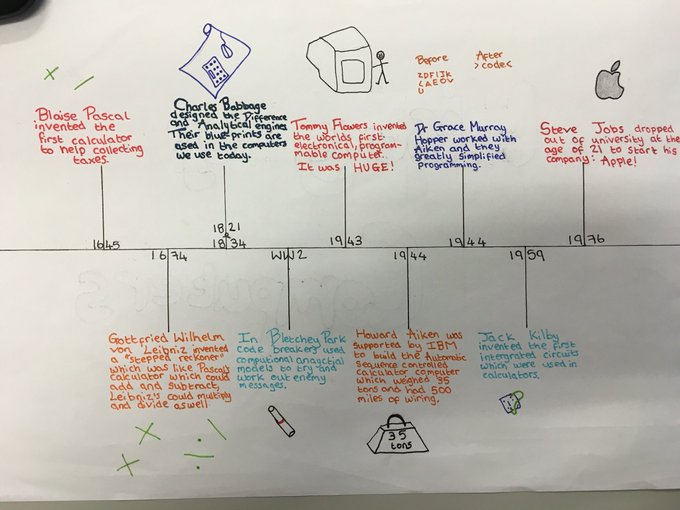 Blaise Pascal
invented the
first calculator
to help collecting
taxes.
Charles Babbage
designed the Difference
and Analytical engines
Their blue-prints are
used in the computers
we use today.
Tommy Flowers invented
the worlds first
electronical, program-
mable computer.
It was HUGE!
Before
ZDFIJK
LAEOV
U
After
>code<
Dr Grace Murray
Hopper worked with
Aiken and they
greatly simplified
programming.
Steve Jobs dropped
out of university at the
age of 21 to start his
company: Apple!
1645
1821
1834
1943
1944
1976
1674
WW2
1944
1959
Gottfried Wilhelm
von Leibniz invented
a "stepped reckoner"
which was like Pascal's
calculator which could
add and subtract,
Leibniz's could multiply
and divide aswell
In Bletchey Park
code breakers used
computional anayctial
models to try and
work out enemy
messages.
Howard Aiken was
supported by IBM
to build the Automatic
sequence controlled
calculator computer
which weighed 35
tons and had 500
miles of wiring.
Jack Kilby
invented the first
intergrated circuits
which were used in
calculators.
35
tons